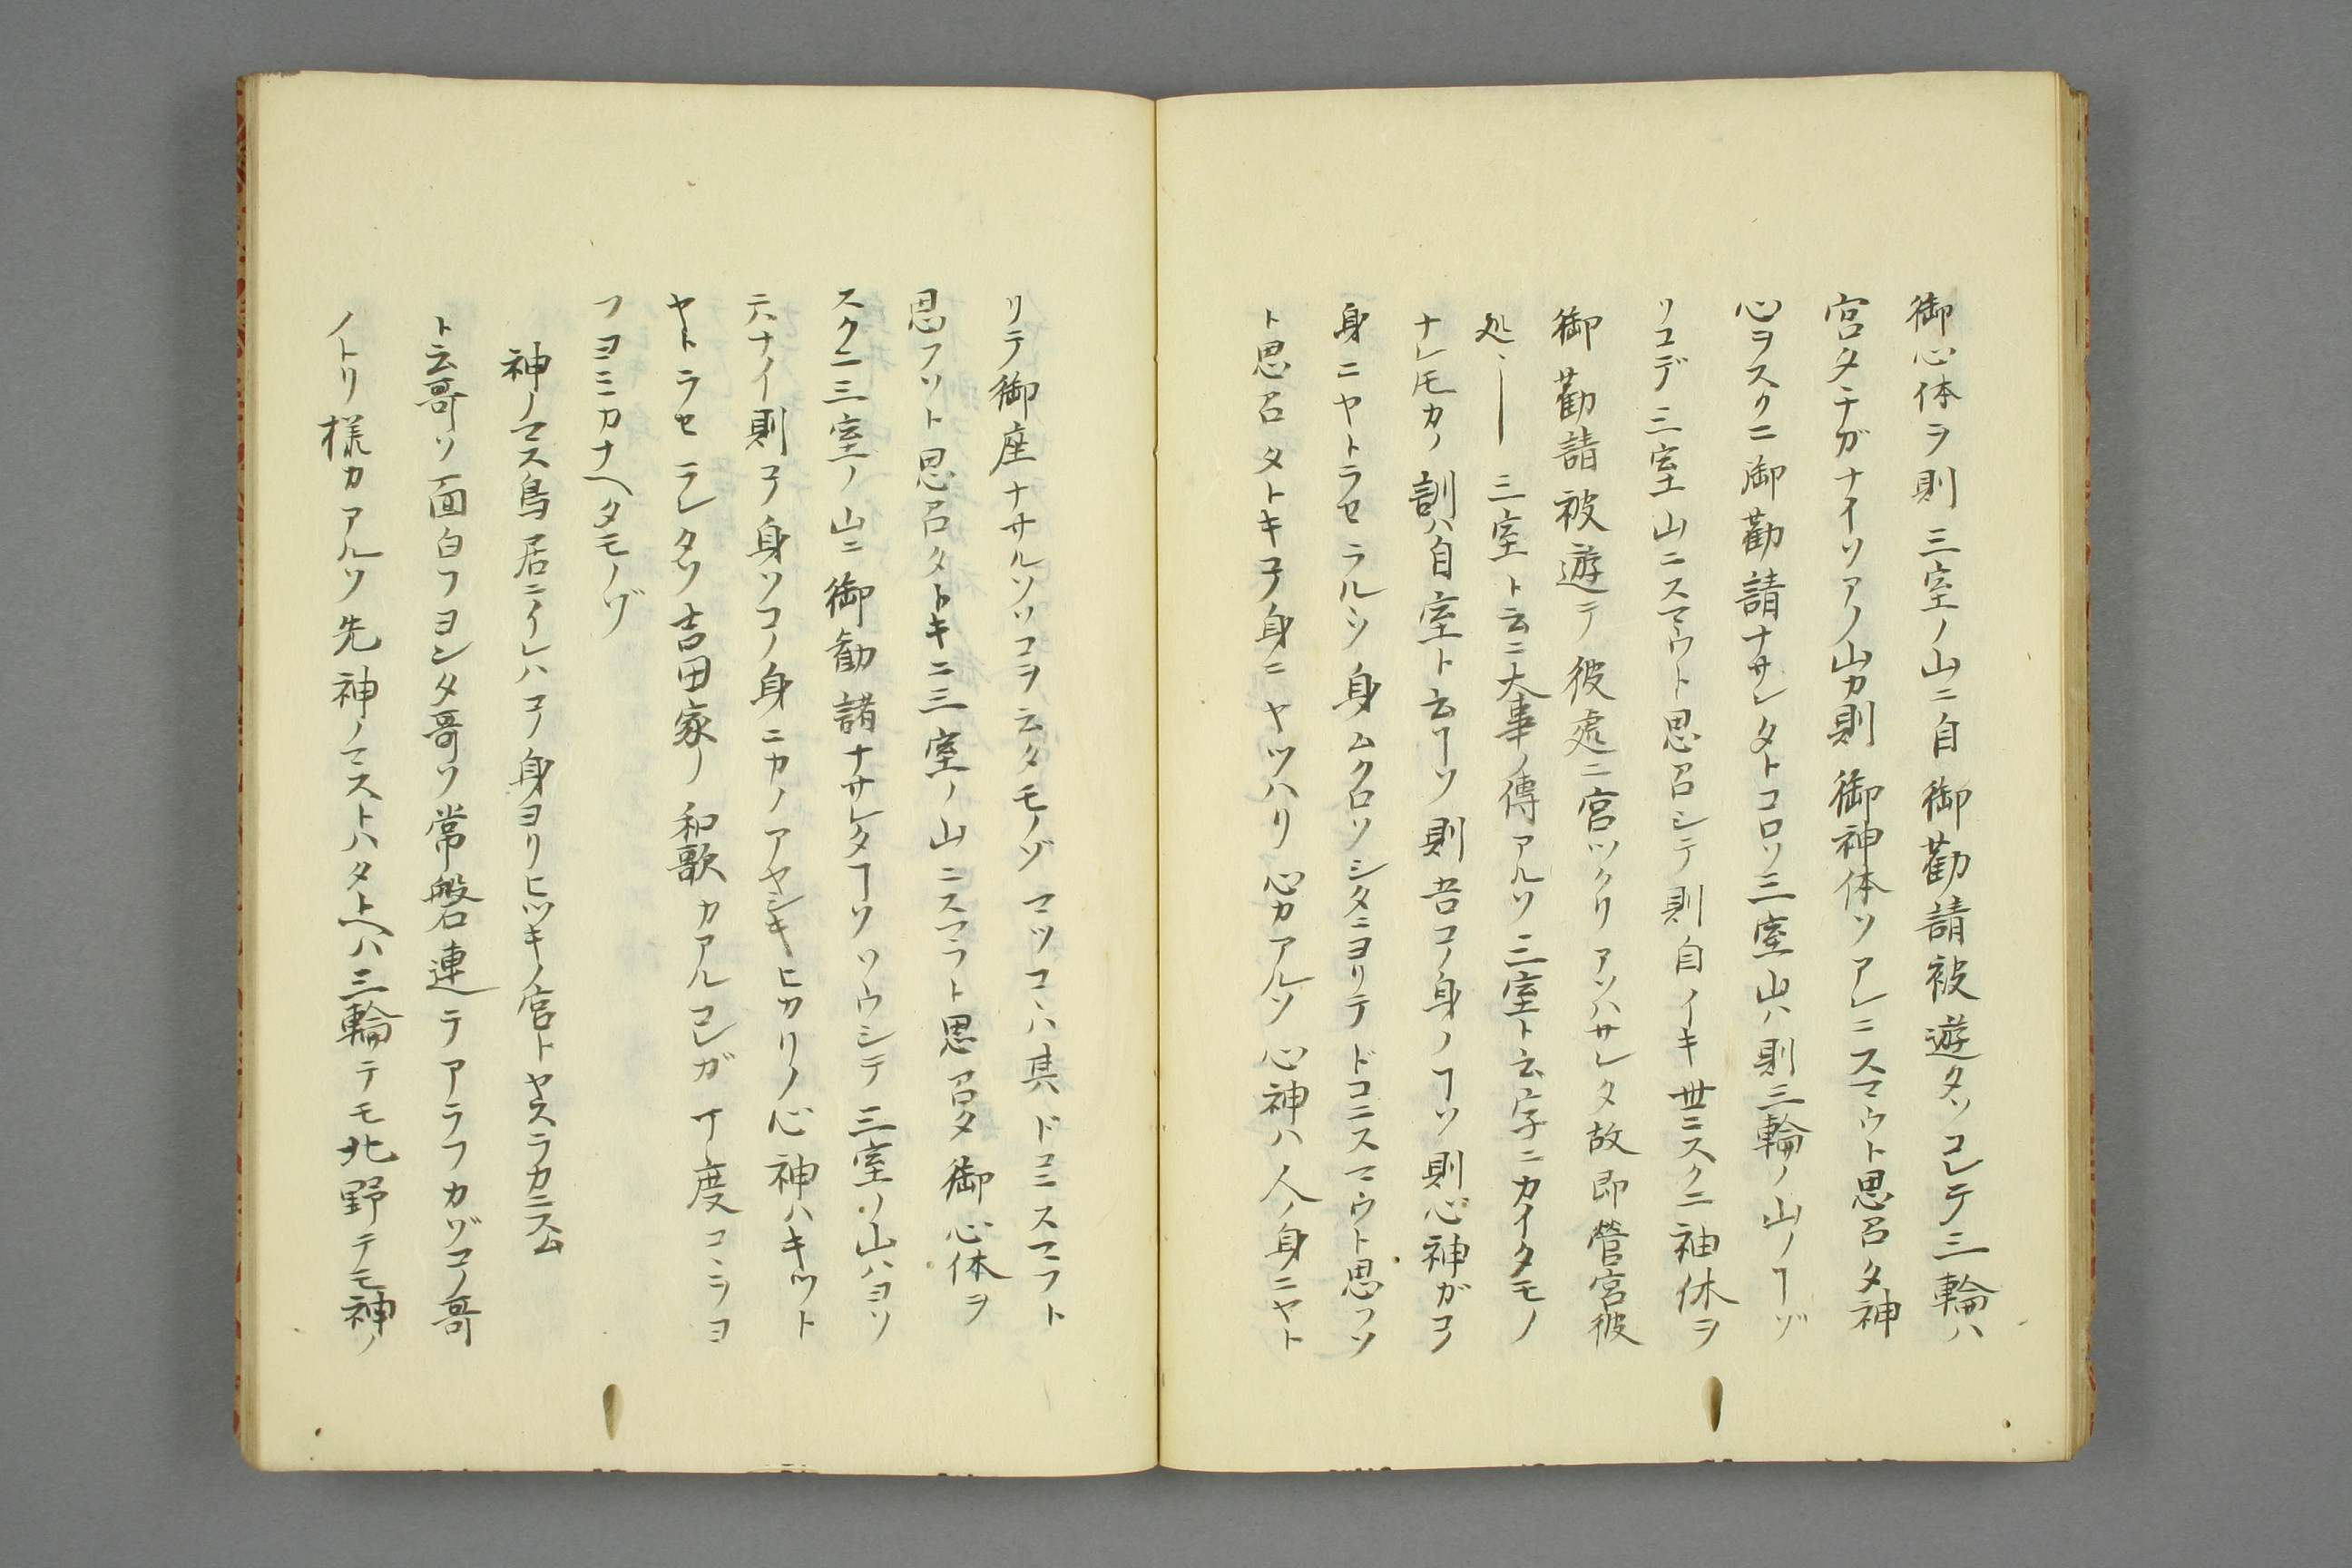 御心体ヲ則三室ノ山ニ自御勸請被遊タソコレテ三輪ハ
宮タチガナイソアノ山カ則御神体ソアレニスマウト思召タ神
心ヲスクニ御勸請ナサレタトコロソ三室山ハ則三輪ノ山ノヿゾ
ソコデ三室山ニスマウト思召シテ則自イキ丗ニスクニ神休ヲ
御勸請被遊テ彼處ニ宮ツクリアソハサレタ故即營宮彼
処ヽ― 三室ト云ニ大事ノ傳アルソ三室ト云字ニカイタモノ
ナレ𪜈カノ訓ハ自室ト云ヿソ則吾コノ身ノヿソ則心神ガコノ
身ニヤトラセラルヽソ身ムクロソシタニヨリテドコニスマウト思フソ
ト思召タトキ子身ニヤツハリ心カアルソ心神ハ人ノ身ニヤト
リテ御座ナサルソソコヲ云タモノゾマツコヽハ其ドコニスマフト
思フソト思召タトキニ三室ノ山ニスマフト思召タ御心体ヲ
スクニ三室ノ山ニ御勧請ナサレタヿソソウシテ三室ノ山ハヨソ
テハナイ則子身ソコノ身ニカノアヤシキヒカリノ心神ハキツト
ヤトラセラレタソ吉田家ノ和歌カアルコレガ丁度コヽラヨ
フヨミカナヘタモノゾ
神ノマス鳥居ニイレハコノ身ヨリヒツキノ宮トヤスラカニスム
ト云哥ソ面白フヨンタ哥ソ常磐連テアラフカゾコノ哥
ノトリ様カアルソ先神ノマストハタトヘハ三輪テモ北野テモ神ノ